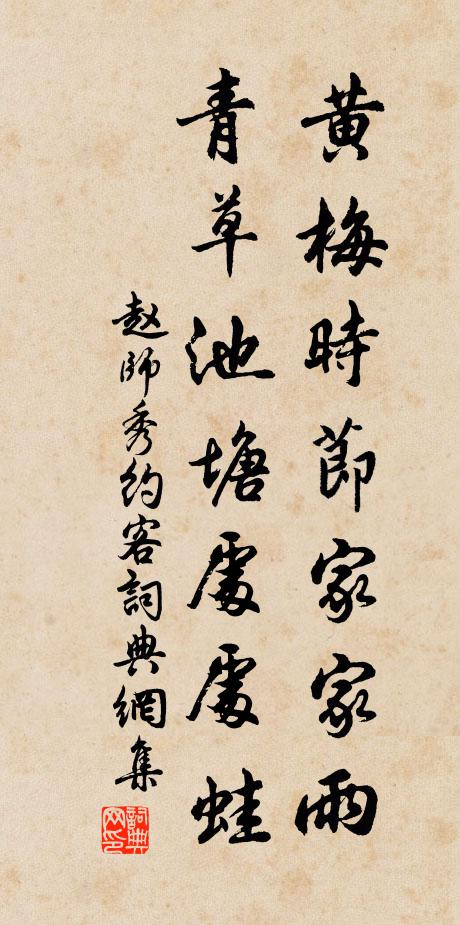 黄梅時節家家雨
青草池塘處處蛙
赵師秀约客詞典網集
詞典网印